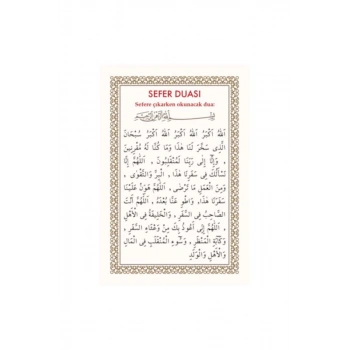 SEFER DUASI
Sefere çıkarken okunacak dua:
بِسْمِ اللهِ الرَّحْمٰنِ الرَّحِيمِ
اَللهُ اَكْبَرُ اَللهُ اَكْبَرُ اَللهُ اَكْبَرُ سُبْحَانَ
الَّذِى سَخَّرَ لَنَا هَذَا وَمَا كُنَّا لَهُ مُقْرِنِينَ
, وَإِنَّا إِلَى رَبِّنَا لَمُنْقَلِبُونَ , اَللَّهُمَّ إِنَّا
نَسْأَلُكَ فِى سَفَرِنَا هَذَا , الْبِرَّ وَالتَّقْوَى ,
وَمِنَ الْعَمَلِ مَا تَرْضَى , اَللَّهُمَّ هَوِّنْ عَلَيْنَا
سَفَرَنَا هَذَا, وَاطْوِ عَنَّا بُعْدَهُ , اَللَّهُمَّ أَنْتَ
الصَّاحِبُ فِى السَّفَرِ , وَالْخَلِيفَةُ فِى الْأَهْلِ
, اَللَّهُمَّ إِنِّى أَعُوذُ بِكَ مِنْ وَعْثَاءِ السَّفَرِ ,
وَكَآبَةِ الْمَنْظَرِ , وَسُوءِ الْمُنْقَلَبِ فِى الْمَالِ
وَالْأَهْلِ وَالْوَلَدِ